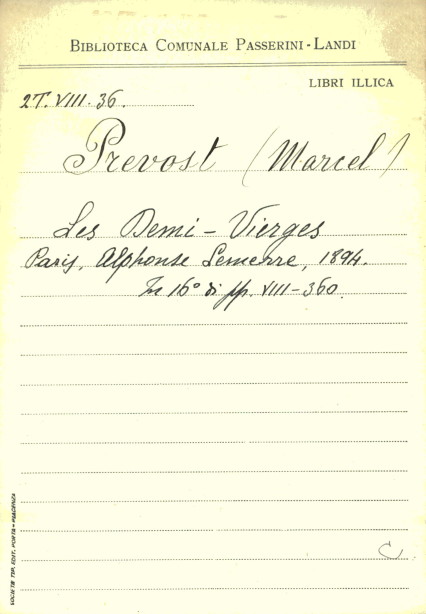 BIBLIOTECA COMUNALE PASSERINI-LANDI
LIBRI ILLICA
2T. VIII. 36.
Prevost (Marcel)
Les Demi-Vierges
Paris, Alphonse Lemerre, 1894.
In 16° di pp. VIII-360.
C
SOCIETÀ TIP. EDIT. PORTA - PIACENZA